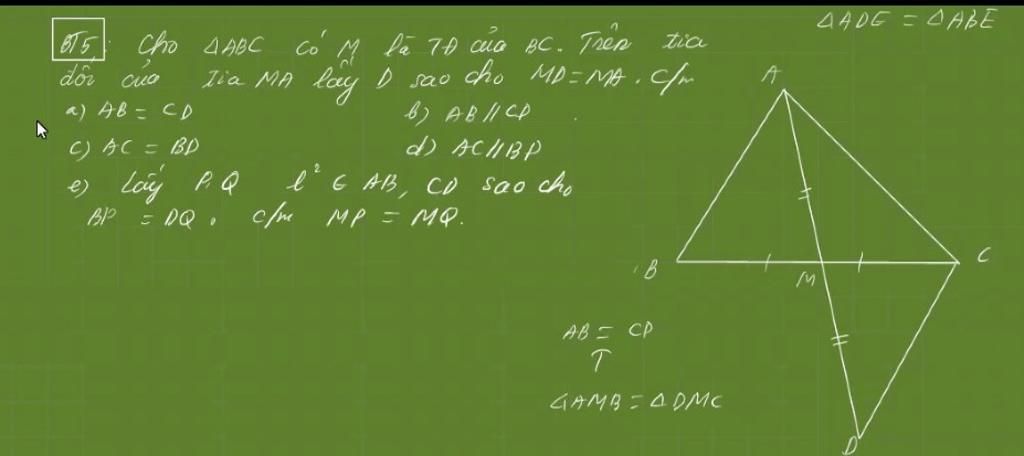 ΔADE = ΔABE
BT5: Cho ΔABC có M là TĐ của BC. Trên tia
đối của tia MA lấy D sao cho MD=MA. C/m
a) AB = CD b) AB//CD
c) AC = BD d) AC//BD
e) Lấy P,Q l² ∈ AB, CD sao cho
BP = DQ. c/m MP = MQ.
A
B
M
C
D
AB = CD
↑
ΔAMB = ΔDMC